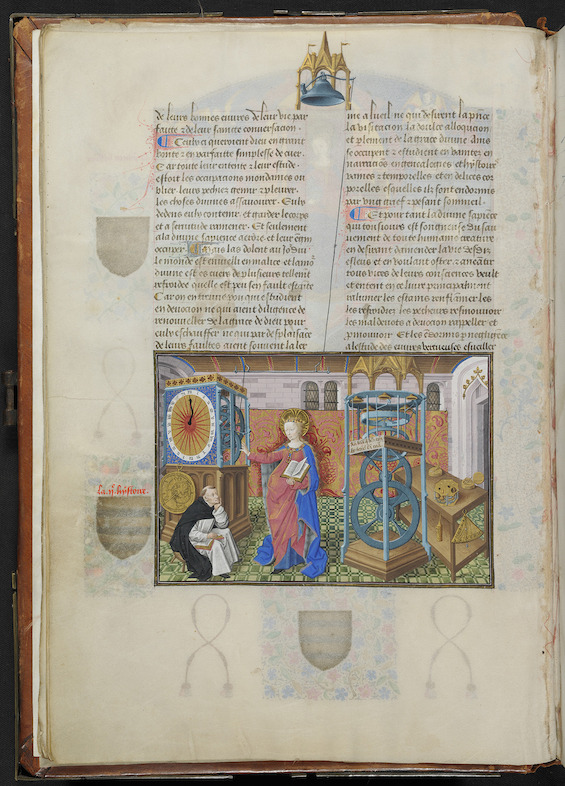 de leurs bonnes euures de leur vie par
faicte et de leur saincte conuersacion.
Ceulx ci queroient dieu en grant
bonte et en parfaicte simplesse de cuer.
Et par toute leur entente et leur estude.
estoit les occupations mondaines ou
blier leurs pechiez gemir et plourer.
les choses diuines assauourer. Eulx
dedens eulx contenir. et garder le corps
et a seruitude ramener. Et seulement
a la diuine sapience
occuper. Mais las dolent au jour duy
le monde est enuielli en malice et lamour
diuine est es cuers de plusieurs tellement
refroidee quelle est peu sen fault estainte
Car on en treuue pou qui estudient
en deuocion ne qui aient diligence de
renouueller de la grace de dieu pour
eulx eschauffer ne qui par desplaisance
de leurs faultes aient souuent la ler
me a lueil ne qui desirent la prince
la visitacion la doulce allocucion
et parlement de la grace diuine Ains
se occupent et estudient en vanitez en
narracions en genealogies et hystoires
paines et temporelles et en delices cor
porelles esquelles ilz sont endormis
par vng grief et pesant sommeil.
Et pour tant la diuine sapience
qui tousiours est songneuse du sau
uement de toute humaine creature
en desirant damender la vie de ses
esleuz et en voulant oster et aneantir
tous vices de leurs consciences veult
et entent en ce liure principaument
ralumer les estains enflammer les
les refroidiez les pecheurs
les maldeuotz a deuocion rappeller et
promouuoir Et les endormis par negligence
a lestude des euures vertueuses esueiller
la ij.e hystoire.